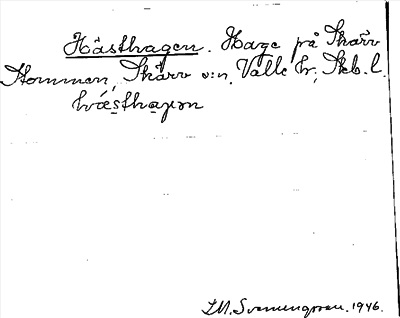 Hästhagen. Hage på Skärv
Stommen, Skärv s:n, Valle hr, Skb. l.
hǽsthagen
I.M. Svenungsson. 1946.